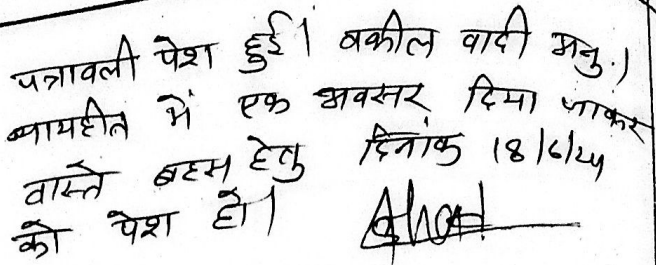 पत्रावली पेश हुई। वकील वादी अनु.।
न्यायहीत में एक अवसर दिया जाकर
वास्ते बहस हेतु दिनांक 18/6/24
को पेश हो।